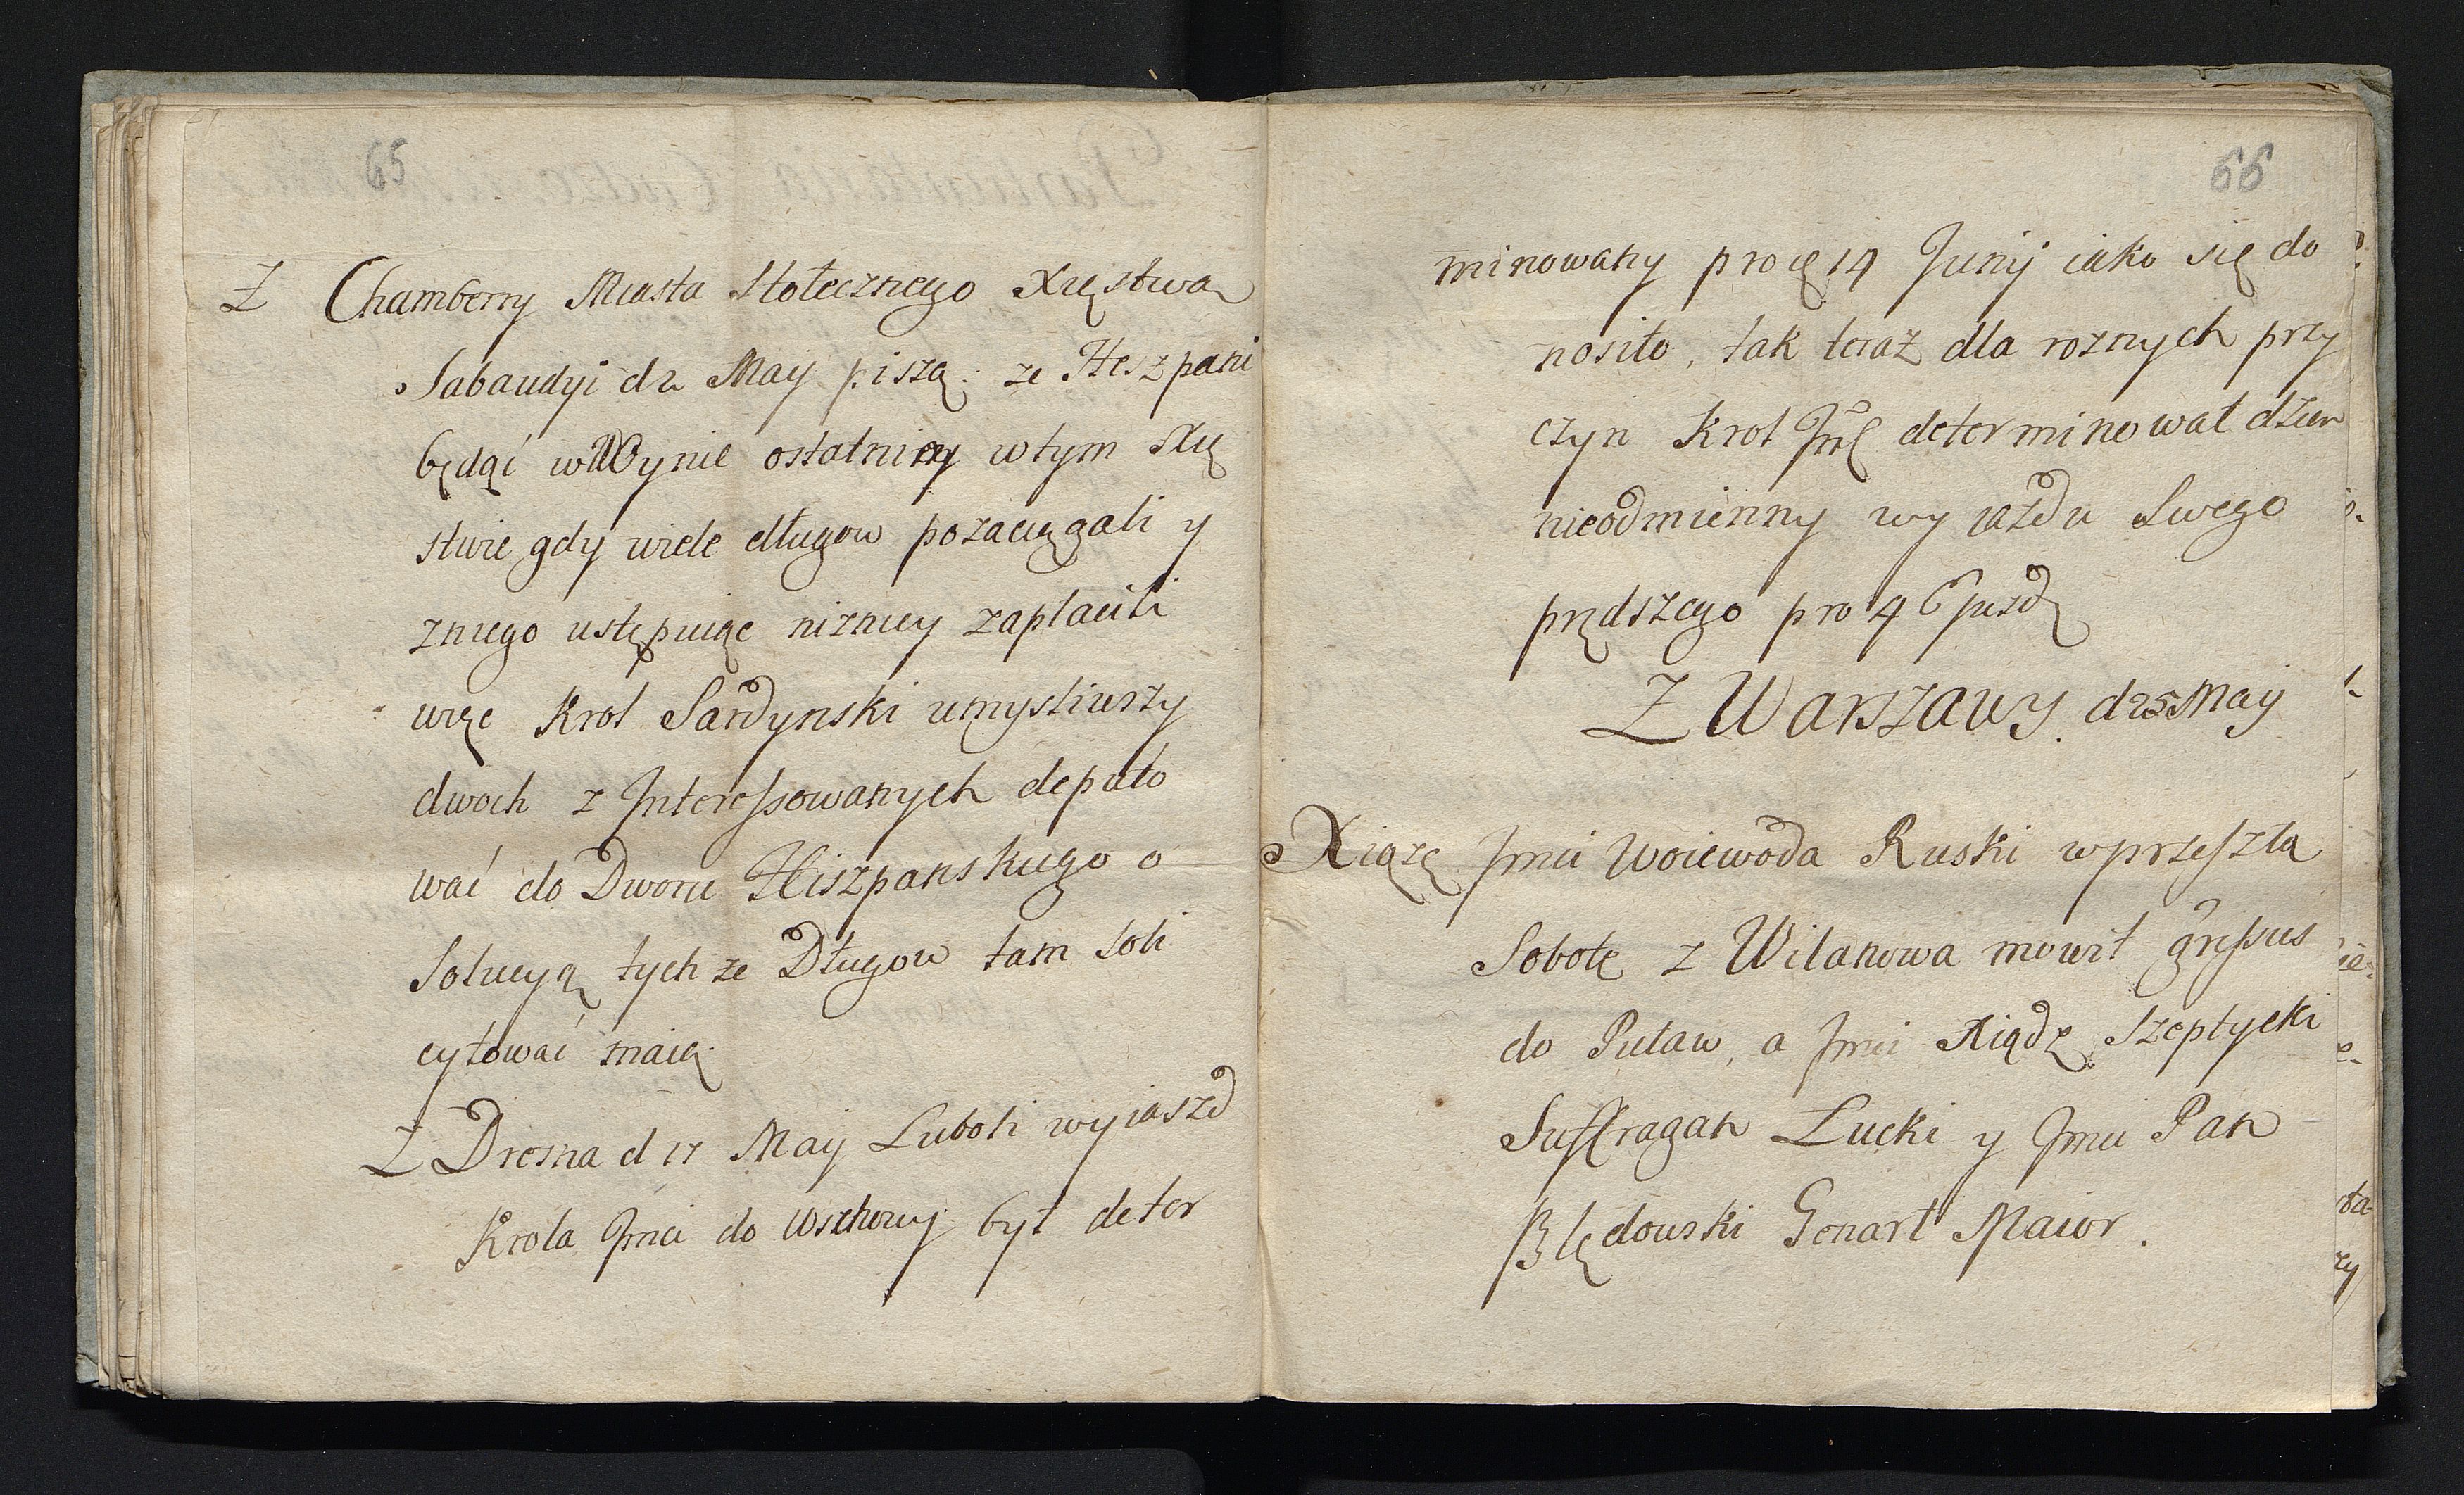 65
Z Chamberry Miasta Stołecznego Xięstwa
Sabaudyi d 2 Maij piszą: ze Heszpani
będąć w Woynie ostatniey w tym Xię
stwie gdy wiele długow pozaciągali y
zniego ustępuiąc nizniey zapłacili
więc Krol Sardynski umysliwszy
dwoch z Interessowanych deputo
wać do Dworu Hiszpanskiego o
Solucyą tych ze Długow tam soli
cytować maią.
Z Drezna d 17 Maij Luboli wyiazd
Krola Jmci do Wschowy był deter
66
minowany pro 14 Junij iako się do
nosiło, tak teraz dla roznych przy
czyn Krol Jmć determinował dzien
nieodmienny wyiazdu Swego
prędszego pro 4
Z Warszawy d 25 Maij
Xiąże Jmci Woiewoda Ruski w przeszłą
Sobotę z Wilanowa mowił
do Puław, a Jmci Xiądz Szeptycki
Suffragan Łucki y Jmci Pan
Błędowski Generał Maior.